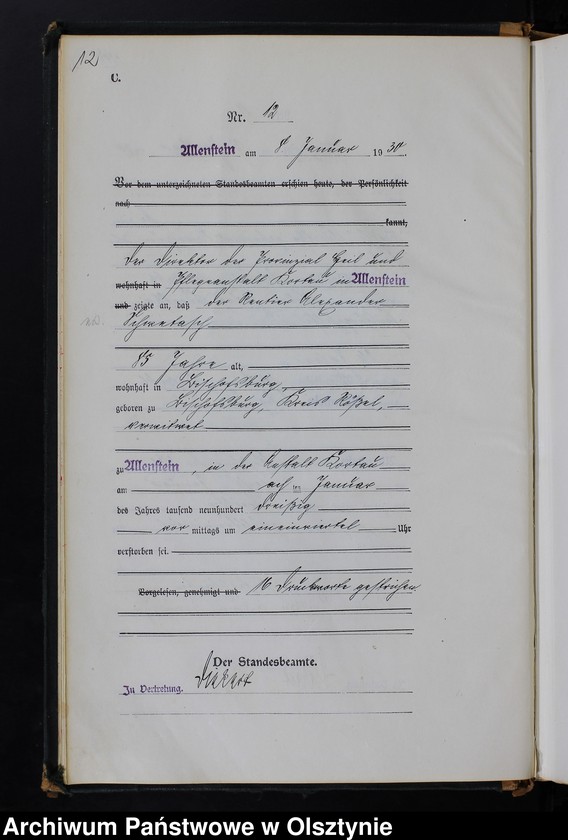 12
C.
Nr. 12
Allenstein am 8 Januar 1930.
Vor dem unterzeichneten Standesbeamten erschien heute, der Persönlichkeit
nach
kannt,
Der Direktor der Provinzial Heil und
wohnhaft in Pflegeanstalt Kortau in Allenstein
und zeigte an, daß der Rentier Alexander
85 Jahre alt,
wohnhaft in Bischofsburg,
geboren zu Bischofsburg, Kreis Rößel,
verwitwet
zu Allenstein, in der Anstalt Kortau
am acht ten Januar
des Jahres tausend neunhundert dreißig
vor mittags um eineinviertel Uhr
verstorben sei.
Vorgelesen, genehmigt und 16 Druckworte gestrichen.
Der Standesbeamte.
In Vertretung.
Archiwum Państwowe w Olsztynie